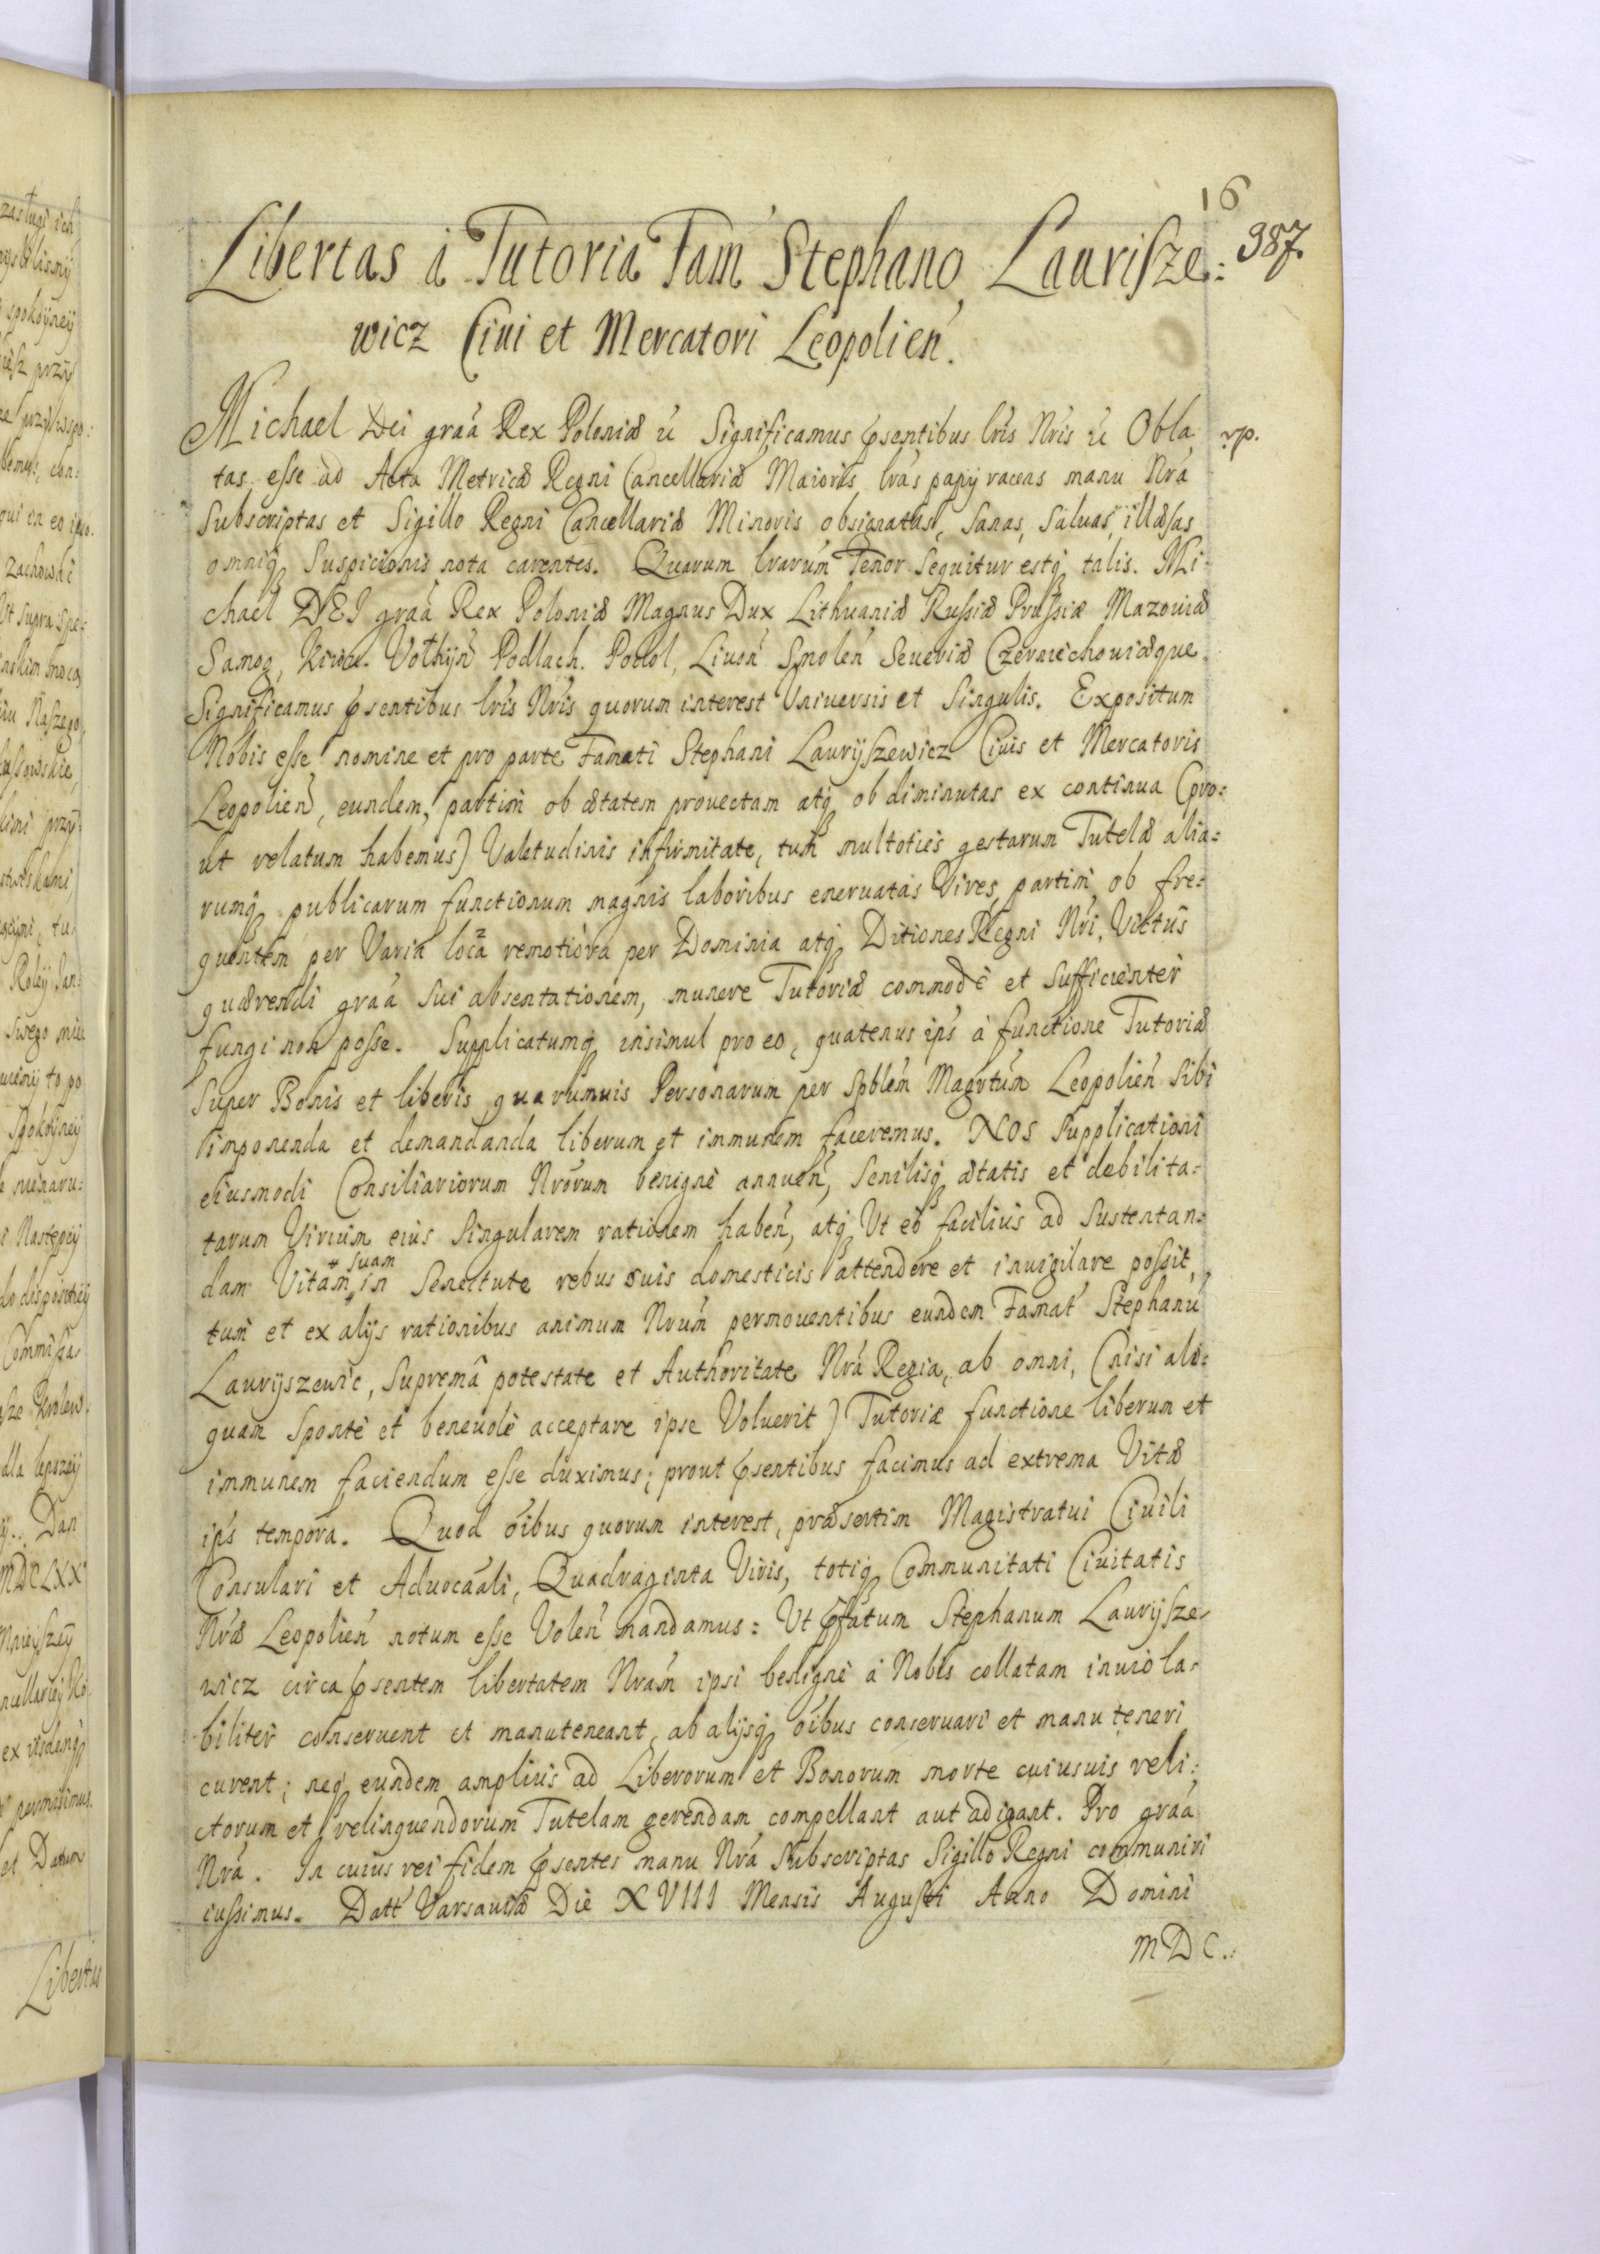 16
387.
Libertas á Tutoria Fam Stephano Laurisze:
wicz Civi et Mercatori Leopolien.
Michael Dei graã Rex Poloniæ ẽ Significamus pñsentibus lris Nris ẽ Obla
rp.
tas esse ad Acta Metricæ Regni Cancellariæ Maioris lrás papyraceas manu Nrá
Subscriptas et Sigillo Regni Cancellariæ Minoris obsignatas, sanas, saluas, illæsas
omniq Suspicionis nota carentes. Quarum lrarum Tenor Sequitur estq talis. Mi-
chael DEI graã Rex Poloniæ Magnus Dux Lithuaniæ Russiæ Prussiæ Mazouiæ
Samog, Kiiou. Volhyn Podlach. Podol, Liuon Smolen Seueriæ Czerniechouiæque
Significamus pñsentibus lris Nris quorum interest Vniuersis et Singulis. Expositum
Nobis esse nomine et pro parte Famati Stephani Lauryszewicz Ciuis et Mercatoris
Leopolien, eundem, partim ob ætatem prouectam atq ob diminutas ex continua (pro:
ut relatum habemus) Valetudinis infirmitate, tum multoties gestarum Tutelæ alia:
rumq publicarum functionum magnis laboribus eneruatas Vires, partim ob fre:
quentem per Varia loca remotiora per Dominia atq Ditiones Regni Nri, Victus
quærendi graã sui absentationem, munere Tutoriæ commodè et Sufficienter
fungi non posse. Supplicatumq insimul pro eo, quatenus ips à functione Tutoriæ
Super Bonis et liberis quarumuis Personarum per Spblem Magrtum Leopolien Sibi
imponenda et demandanda liberum et immunem faceremus. NOS Supplicationi
eiusmodi Consiliariorum Nrorum benignè annuen, Senilisq ætatis et debilita:
tarum Virium eius Singularem rationem haben, atq Vt eo facilius ad Sustentan:
dam Vitam suam in Senectute rebus suis domesticis attendere et inuigilare possit,
tum et ex alijs rationibus animum Nrum permouentibus eundem Famat Stephanu
Lauryszewic, Supremâ potestate et Authoritate Nrá Regia, ab omni, (nisi ali:
quam Spontè et beneuolè acceptare ipse Voluerit) Tutoriæ functione liberum et
immunem faciendum esse duximus; prout pñsentibus facimus ad extrema Vitæ
ips tempora. Quod oibus quorum interest, præsertim Magistratui Ciuili
Consulari et Aduocaali, Quadraginta Viris, totiq Communitati Ciuitatis
Nræ Leopolien notum esse Volen mandamus: Vt pfatum Stephanum Laurysze-
wicz circa pñsentem libertatem Nram ipsi benignè á Nobis collatam inuiola-
biliter conseruent et manuteneant, ab alijsq oibus conseruari et manuteneri
curent; neq eundem amplius ad Liberorum et Bonorum morte cuiusuis reli:
ctorum et relinquendorum Tutelam gerendam compellant aut adigant. Pro graã
Nrá. In cuius rei fidem pñsentes manu Nrá Subscriptas Sigillo Regni communiri
iussimus. Datt Varsauiæ Die XVIII Mensis Augusti Anno Domini
MDC.: